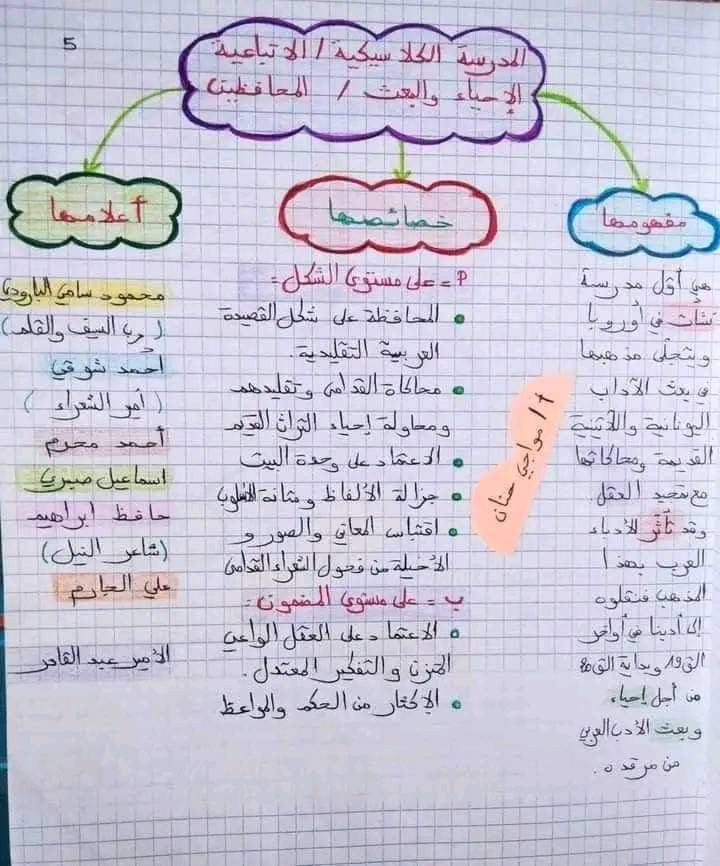 5
المدرسة الكلاسيكية / الاتباعية
الإحياء والبعث / المحافظين
مفهومها
هي أوّل مدرسة
نشأت في أوروبا
ويتجلّى مذهبها
في بعث الآداب
اليونانية واللاّتينية
القديمة ومحاكاتها
مع تمجيد العقل
وقد تأثر الأدباء
العرب بهذا
المذهب فنقلوه
إلى أدبنا في أواخر
الق19 وبداية الق20
من أجل إحياء
وبعث الأدب العربي
من مرقده.
خصائصها
أ = على مستوى الشكل =
المحافظة على شكل القصيدة
العربية التقليدية.
محاكاة القدامى وتقليدهم
ومحاولة إحياء التراث القديم
الاعتماد على وحدة البيت
جزالة الألفاظ ومتانة الأسلوب
اقتباس المعاني والصور و
الأخيلة من فحول الشعراء القدامى
ب = على مستوى المضمون =
الاعتماد على العقل الواعي
المتزن والتفكير المعتدل.
الإكثار من الحكم والمواعظ
أعلامها
محمود سامي البارودي
(رب السيف والقلم)
أحمد شوقي
(أمير الشعراء)
أحمد محرم
اسماعيل صبري
حافظ ابراهيم
(شاعر النيل)
علي الجارم
الأمير عبد القادر
أ/ مواجي حنان